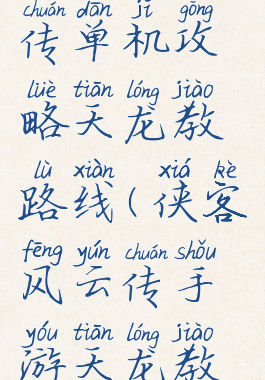 chuán dān jī gōng
传单机攻
lüè tiān lóng jiào
略天龙教
lù xiàn xiá kè
路线（侠客
fēng yún chuán shǒu
风云传手
yóu tiān lóng jiào
游天龙教